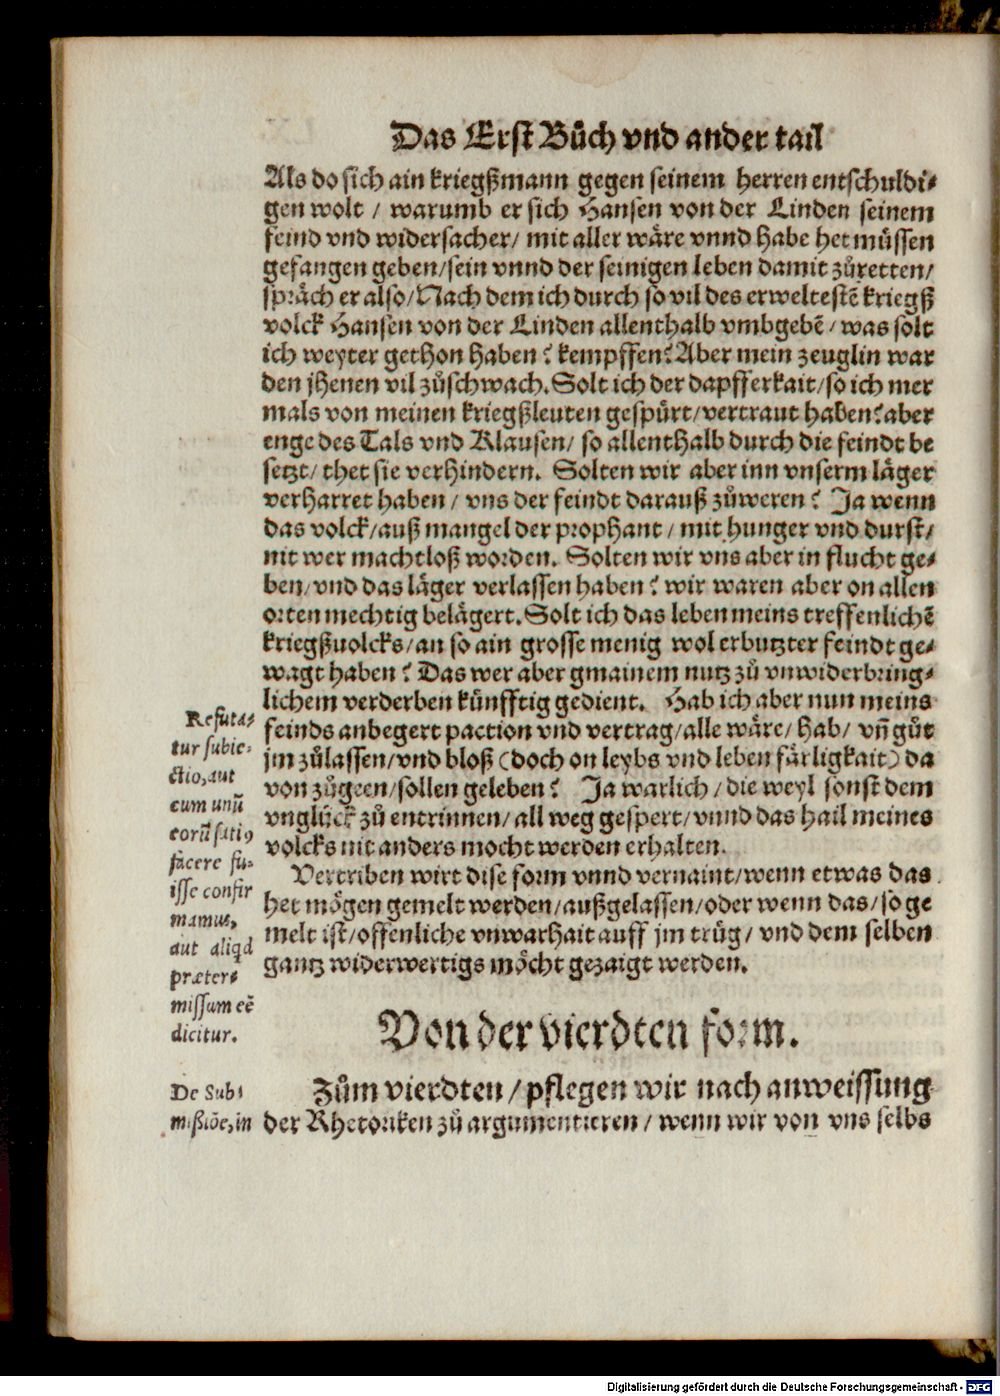 Das Erst Bůch vnd ander tail
Als do sich ain kriegßmann gegen seinem herren entschuldi⸗
gen wolt / warumb er sich Hansen von der Linden seinem
feind vnd widersacher / mit aller wäre vnnd habe het müssen
gefangen geben / sein vnnd der seinigen leben damit zůretten /
spräch er also / Nach dem ich durch so vil des erweltestẽ kriegß
volck Hansen von der Linden allenthalb vmbgebẽ / was solt
ich weyter gethon haben? kempffen? Aber mein zeuglin war
den jhenen vil zůschwach. Solt ich der dapfferkait / so ich mer
mals von meinen kriegßleuten gespürt / vertraut haben? aber
enge des Tals vnd Klausen / so allenthalb durch die feindt be
setzt / thet sie verhindern. Solten wir aber inn vnserm läger
verharret haben / vns der feindt darauß zůweren? Ja wenn
das volck / auß mangel der prophant / mit hunger vnd durst /
nit wer machtloß worden. Solten wir vns aber in flucht ge⸗
ben / vnd das läger verlassen haben? wir waren aber on allen
orten mechtig belägert. Solt ich das leben meins treffenlichẽ
kriegßuolcks / an so ain grosse menig wol erbutzter feindt ge⸗
wagt haben? Das wer aber gmainem nutz zů vnwiderbring⸗
lichem verderben künfftig gedient. Hab ich aber nun meins
feinds anbegert paction vnd vertrag / alle wäre / hab / vñ gůt
jm zůlassen / vnd bloß (doch on leybs vnd leben färligkait) da
von zůgeen / sollen geleben? Ja warlich / die weyl sonst dem
vnglück zů entrinnen / all weg gespert / vnnd das hail meines
volcks nit anders mocht werden erhalten.
Vertriben wirt dise form vnnd vernaint / wenn etwas das
het mögen gemelt werden / außgelassen / oder wenn das / so ge
melt ist / offenliche vnwarhait auff jm trüg / vnd dem selben
gantz widerwertigs möcht gezaigt werden.
Refuta⸗
tur subie⸗
ctio, aut
cum unũ
eorũ satiꝰ
facere fu⸗
isse confir
mamus,
aut aliqd
præter⸗
missum eẽ
dicitur.
Von der vierdten form.
Zům vierdten / pflegen wir nach anweissung
der Rhetoriken zů argumentieren / wenn wir von vns selbs
De Sub⸗
mißiõe, in
Digitalisierung gefördert durch die Deutsche Forschungsgemeinschaft - DFG